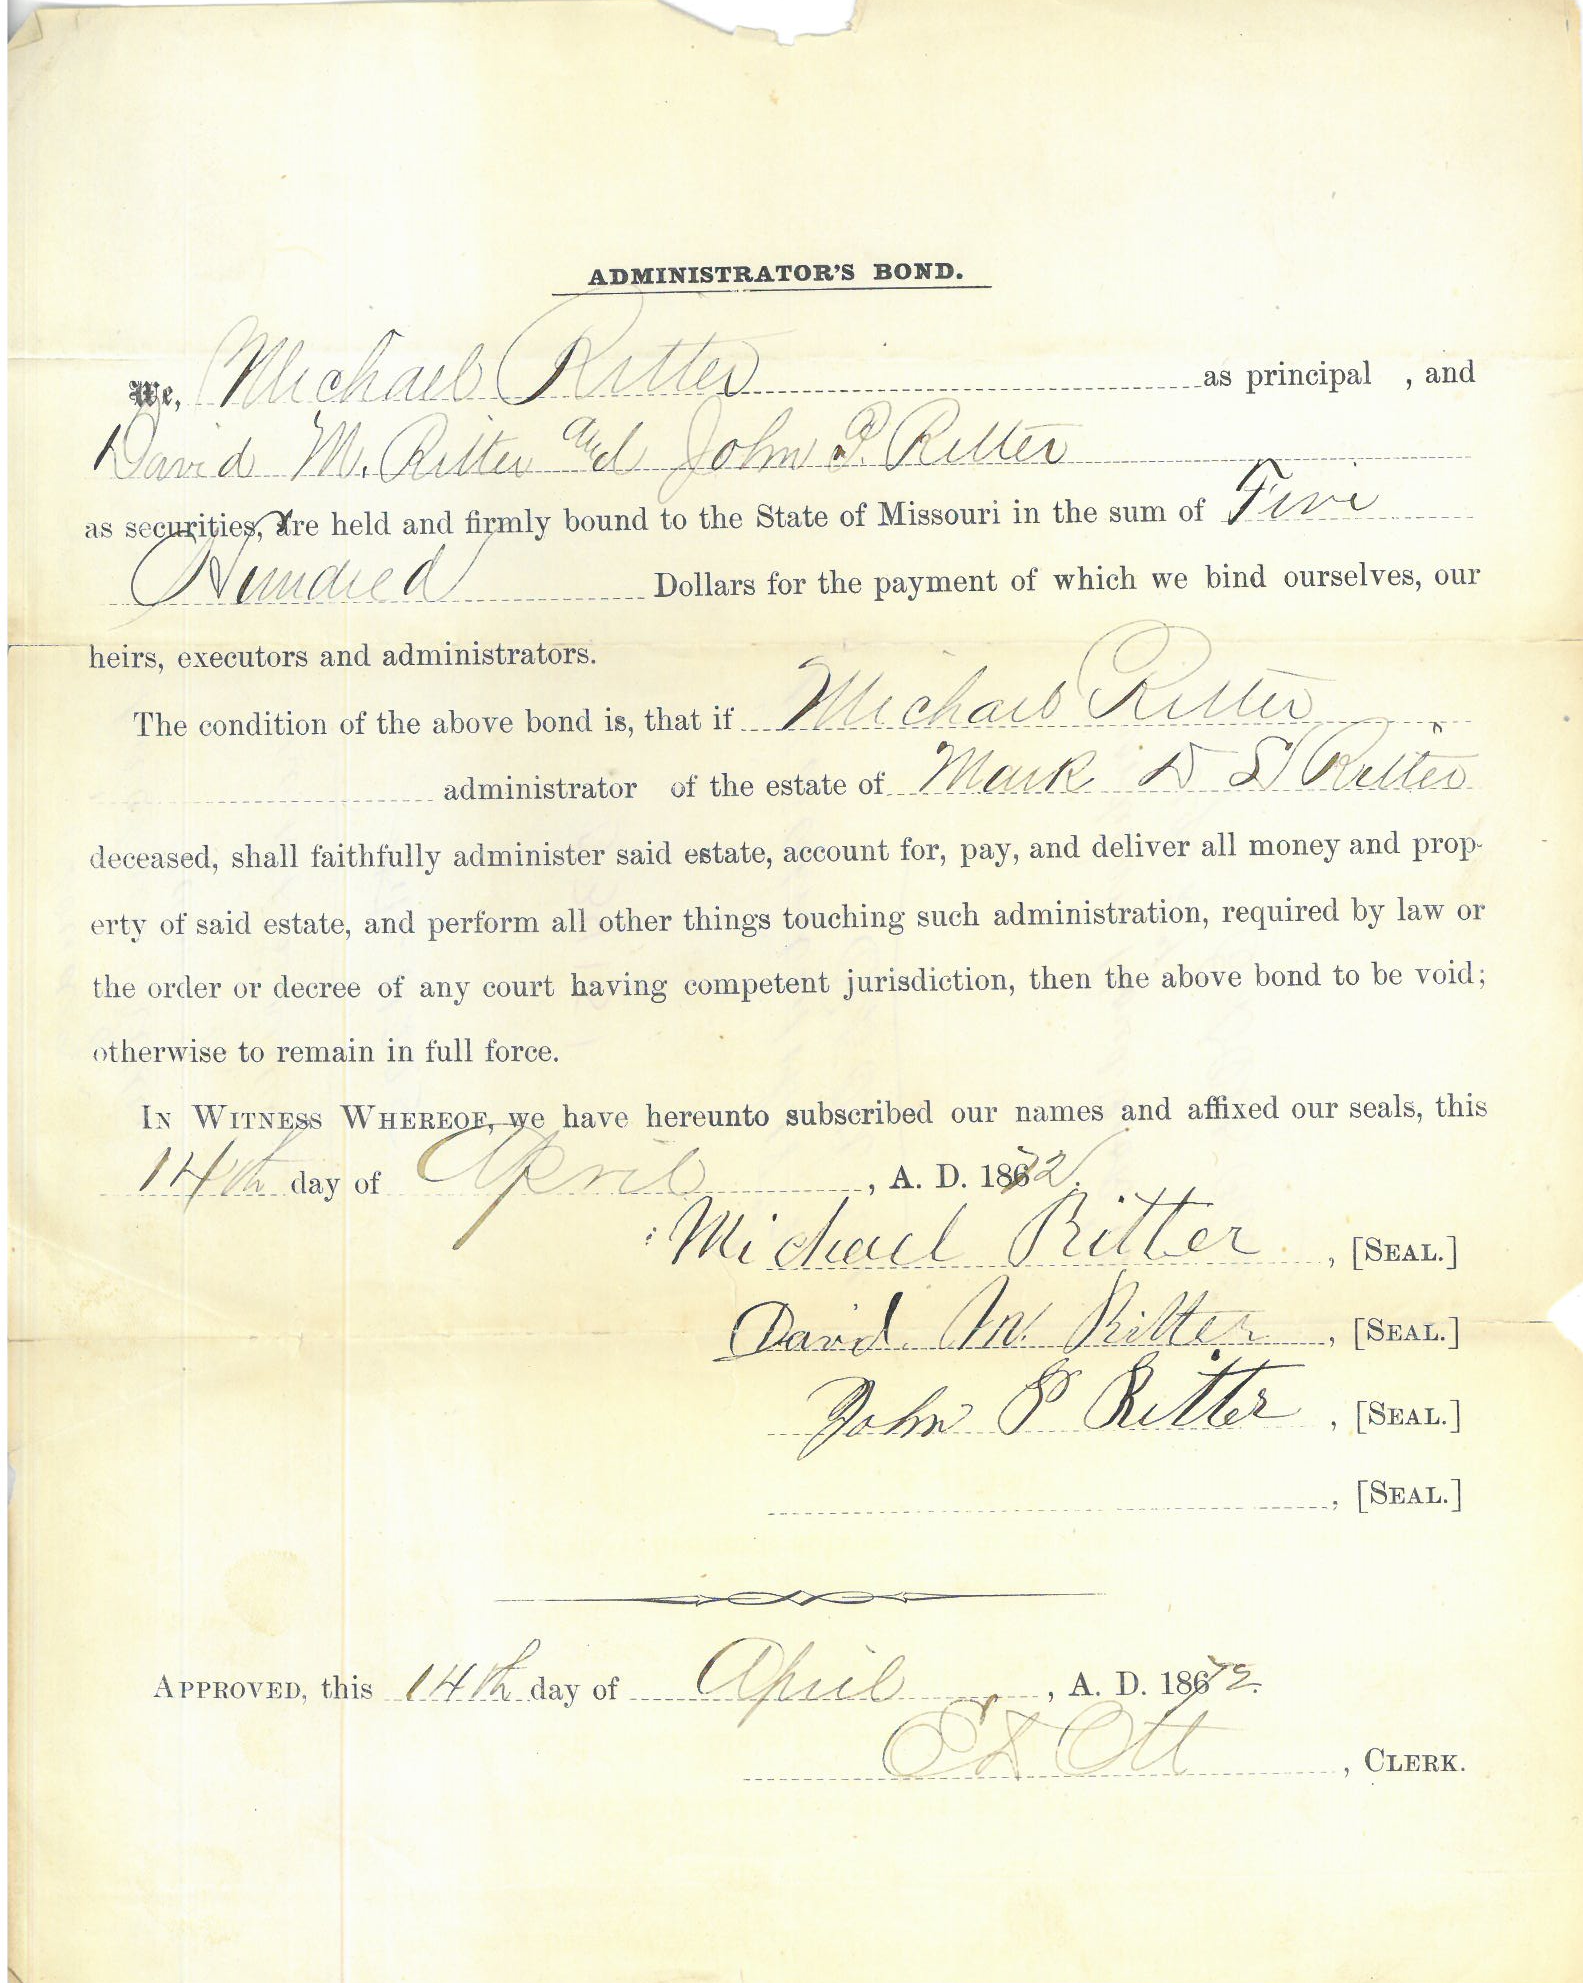 ADMINISTRATOR'S BOND.
We, Michael Ritter as principal , and
David M. Ritter and John P. Ritter
as securities, are held and firmly bound to the State of Missouri in the sum of Five
Hundred Dollars for the payment of which we bind ourselves, our
heirs, executors and administrators.
The condition of the above bond is, that if Michael Ritter
administrator of the estate of Mark D S Ritter
deceased, shall faithfully administer said estate, account for, pay, and deliver all money and prop-
erty of said estate, and perform all other things touching such administration, required by law or
the order or decree of any court having competent jurisdiction, then the above bond to be void;
otherwise to remain in full force.
IN WITNESS WHEREOF, we have hereunto subscribed our names and affixed our seals, this
14th day of April , A. D. 1872.
Michael Ritter , [SEAL.]
David M. Ritter , [SEAL.]
John P Ritter , [SEAL.]
, [SEAL.]
APPROVED, this 14th day of April , A. D. 1872.
Ott , CLERK.